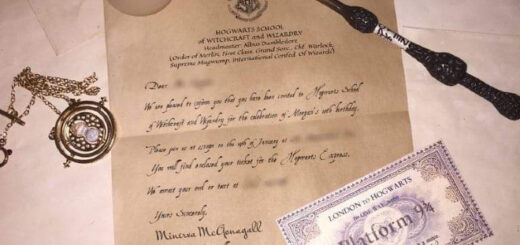 HOGWARTS SCHOOL
of WITCHCRAFT and WIZARDRY
Headmaster: Albus Dumbledore
(Order of Merlin, First Class, Grand Sorc., Chf. Warlock,
Supreme Mugwump, International Confed. Of Wizards)
Dear
We are pleased to inform you that you have been invited to Hogwarts School
of Witchcraft and Wizardry for the celebration of Morgan's birthday.
Please join us at on the of January at
You will find enclosed your ticket for the Hogwarts Express.
We await your owl or text at
Yours Sincerely,
Minerva McGonagall
LONDON TO HOGWARTS
Platform 9¾